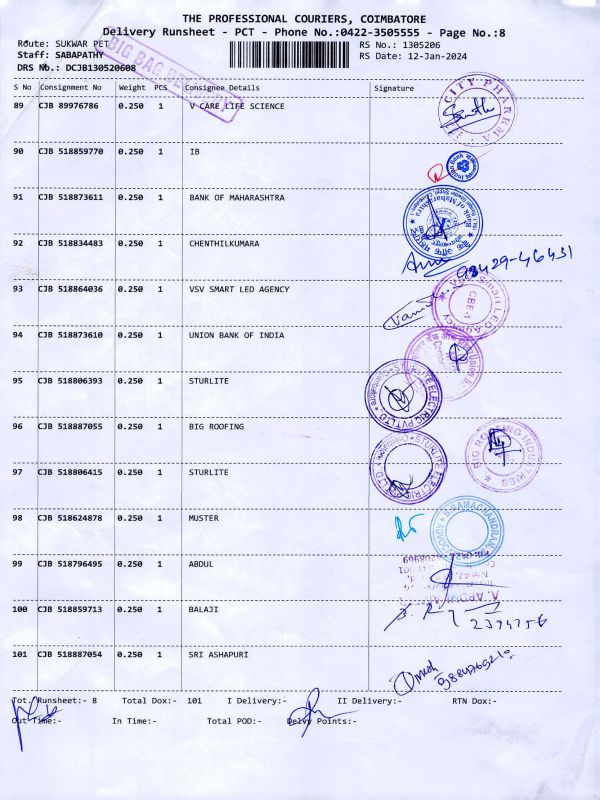 THE PROFESSIONAL COURIERS, COIMBATORE
Delivery Runsheet - PCT - Phone No.:0422-3505555 - Page No.:8
Route: SUKWAR PET
RS No.: 1305206
Staff: SABAPATHY
RS Date: 12-Jan-2024
DRS No.: DCJB130520608
BIG BAG
S No Consignment No Weight PCS Consignee Details Signature
89 CJB 89976786 0.250 1 V CARE LIFE SCIENCE
CITY PHARMA
90 CJB 518859770 0.250 1 IB
91 CJB 518873611 0.250 1 BANK OF MAHARASHTRA
Bank of Maharashtra
92 CJB 518834483 0.250 1 CHENTHILKUMARA
93429-46431
93 CJB 518864036 0.250 1 VSV SMART LED AGENCY
CBE-1
94 CJB 518873610 0.250 1 UNION BANK OF INDIA
95 CJB 518806393 0.250 1 STURLITE
STURLITE ELECTRIC PVT LTD. Coimbatore
96 CJB 518887055 0.250 1 BIG ROOFING
BIG ROOFING INDUSTRIES
97 CJB 518806415 0.250 1 STURLITE
STURLITE ELECTRIC
98 CJB 518624878 0.250 1 MUSTER
99 CJB 518796495 0.250 1 ABDUL
100 CJB 518859713 0.250 1 BALAJI
101 CJB 518887054 0.250 1 SRI ASHAPURI
Tot. Runsheet:- 8 Total Dox:- 101 I Delivery:- II Delivery:- RTN Dox:-
Out Time:- In Time:- Total POD:- Delvy Points:-